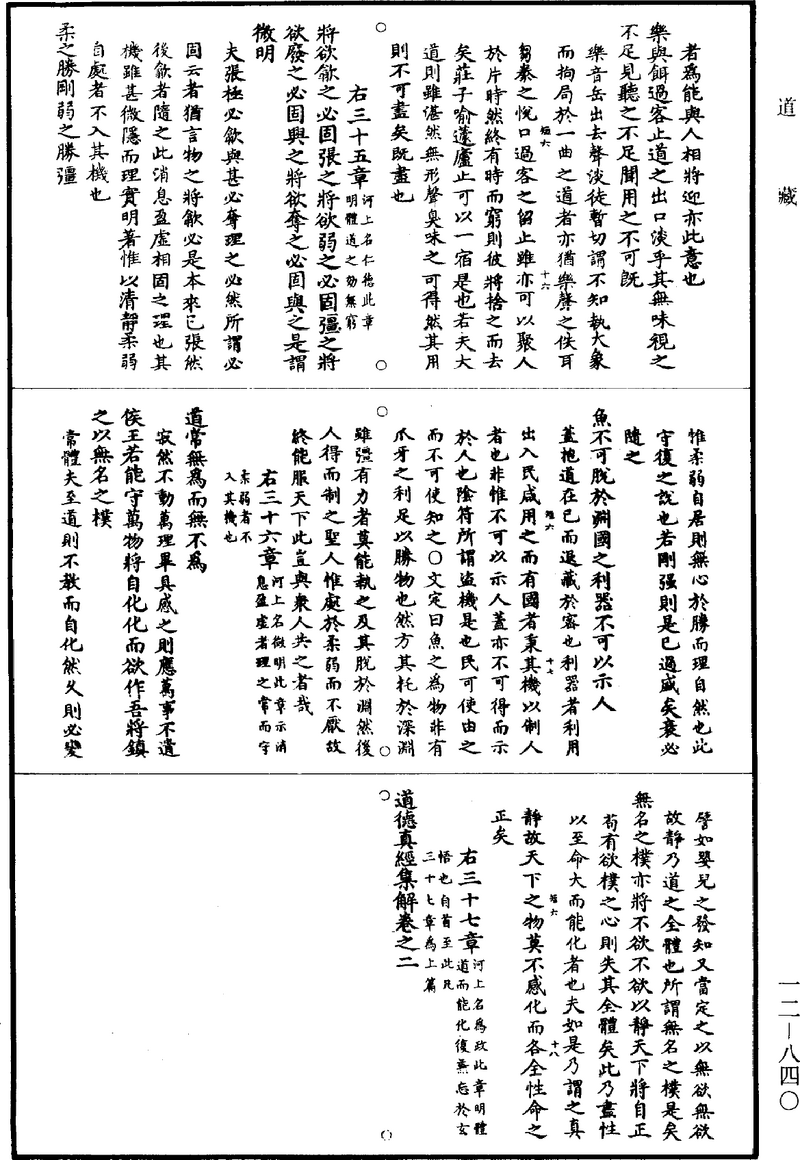 道藏
者為能與人相將迎亦此意也
樂與餌過客止道之出口淡乎其無味視之
不足見聽之不足聞用之不可既
樂音岳出去聲淡徒暫切謂不知執大象
而拘局於一曲之道者亦猶樂聲之佚耳
芻豢之悅口過客之留止雖亦可以聚人
於片時然終有時而窮則彼將捨之而去
矣莊子喻蘧廬止可以一宿是也若夫大
道則雖湛然無形聲臭味之可得然其用
則不可盡矣既盡也
右三十五章河上名仁德此章
明體道之効無窮
將欲歙之必固張之將欲弱之必固彊之將
欲廢之必固興之將欲奪之必固與之是謂
微明
夫張極必歙與甚必奪理之必然所謂必
固云者猶言物之將歙必是本來已張然
後歙者隨之此消息盈虛相因之理也其
機雖甚微隱而理實明著惟以清靜柔弱
自處者不入其機也
柔之勝剛弱之勝彊
惟柔弱自居則無心於勝而理自然也此
守復之說也若剛强則是已過盛矣衰必
隨之
魚不可脫於淵國之利器不可以示人
蓋抱道在己而退藏於密也利器者利用
出入民咸用之而有國者秉其機以制人
者也非惟不可以示人蓋亦不可得而示
於人也陰符所謂盜機是也民可使由之
而不可使知之○文定曰魚之為物非有
爪牙之利足以勝物也然方其托於深淵
雖彊有力者莫能執之及其脫於淵然後
人得而制之聖人惟處於柔弱而不厭故
終能服天下此豈與衆人共之者哉
右三十六章河上名微明此章示消
息盈虛者理之常而守
柔弱者不
入其機也
道常無為而無不為
寂然不動萬理畢具感之則應萬事不遺
侯王若能守萬物將自化化而欲作吾將鎮
之以無名之樸
常體夫至道則不教而自化然久則必變
譬如嬰兒之發知又當定之以無欲無欲
故靜乃道之全體也所謂無名之樸是矣
無名之樸亦將不欲不欲以靜天下將自正
苟有欲樸之心則失其全體矣此乃盡性
以至命大而能化者也夫如是乃謂之真
靜故天下之物莫不感化而各全性命之
正矣
右三十七章河上名為政此章明體
道而能化復無忘於玄
悟也自首至此凡
三十七章為上篇
道德真經集解卷之二
一二—八四〇